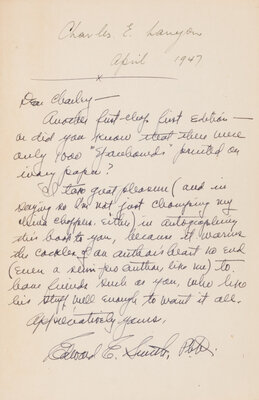 Charles E.
April 1947
x
Dear Charley—
Another first-class first edition—
or did you know that there were
only 1000 "Spacehounds" printed on
ivory paper?
I take great pleasure (and in
saying so I'm not just chomping my
china choppers, either) in autographing
this book to you, because it warms
the cockles of an author's heart no end
(even a semi-pro author, like me) to
have friends such as you, who like
his stuff well enough to want it all.
Appreciatively yours,
Edward E. Smith, Ph.D.